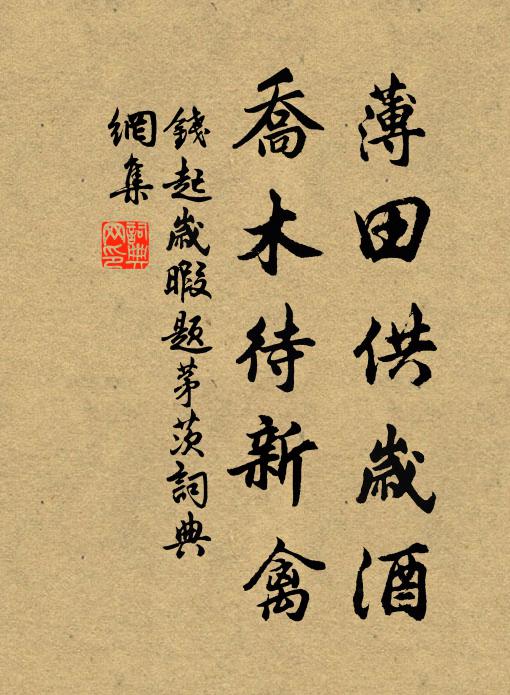 薄田供歲酒
喬木待新禽
錢起歲暇題茅茨詞典
網集
詞典
网印